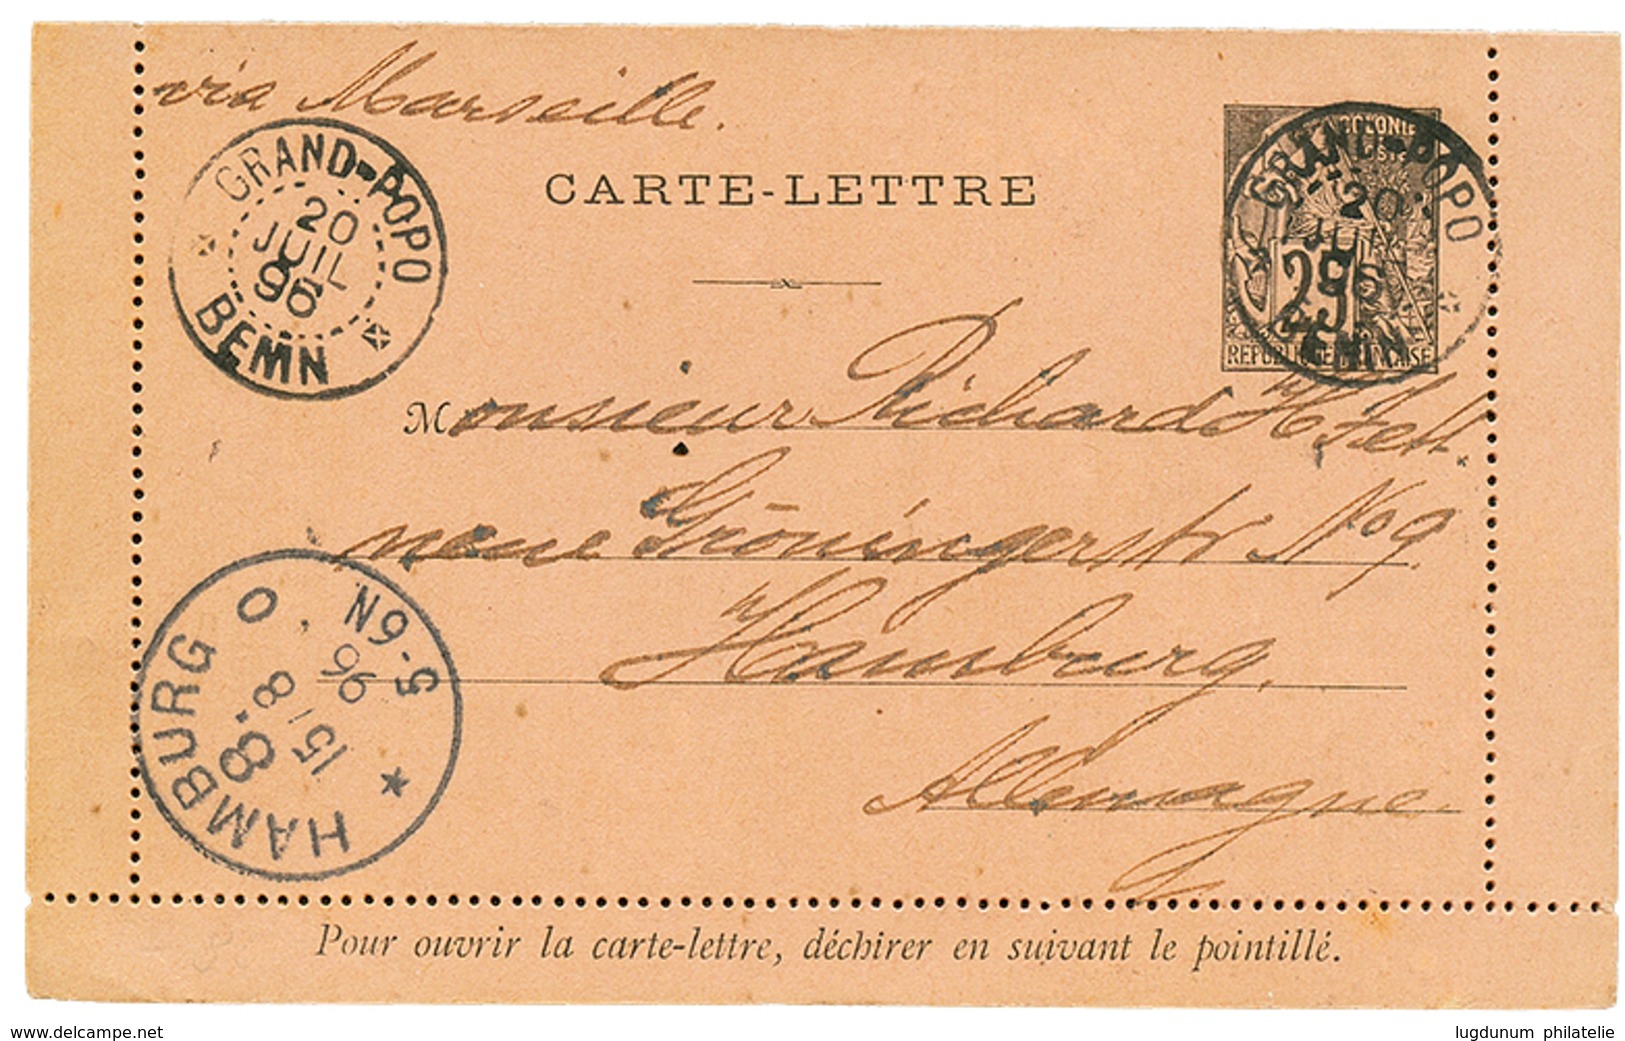 via Marseille.
GRAND-POPO
20
JUIL
96
BENIN
CARTE-LETTRE
COLONIES
GRAND-POPO
20
JUIL
96
25
RÉPUBLIQUE FRANÇAISE
Monsieur Richard H Fett.
neue Gröningerstr No 9.
Hamburg.
Allemagne.
HAMBURG O. 8.
15/8
96
5-6N
Pour ouvrir la carte-lettre, déchirer en suivant le pointillé.
www.delcampe.net
lugdunum philatelie